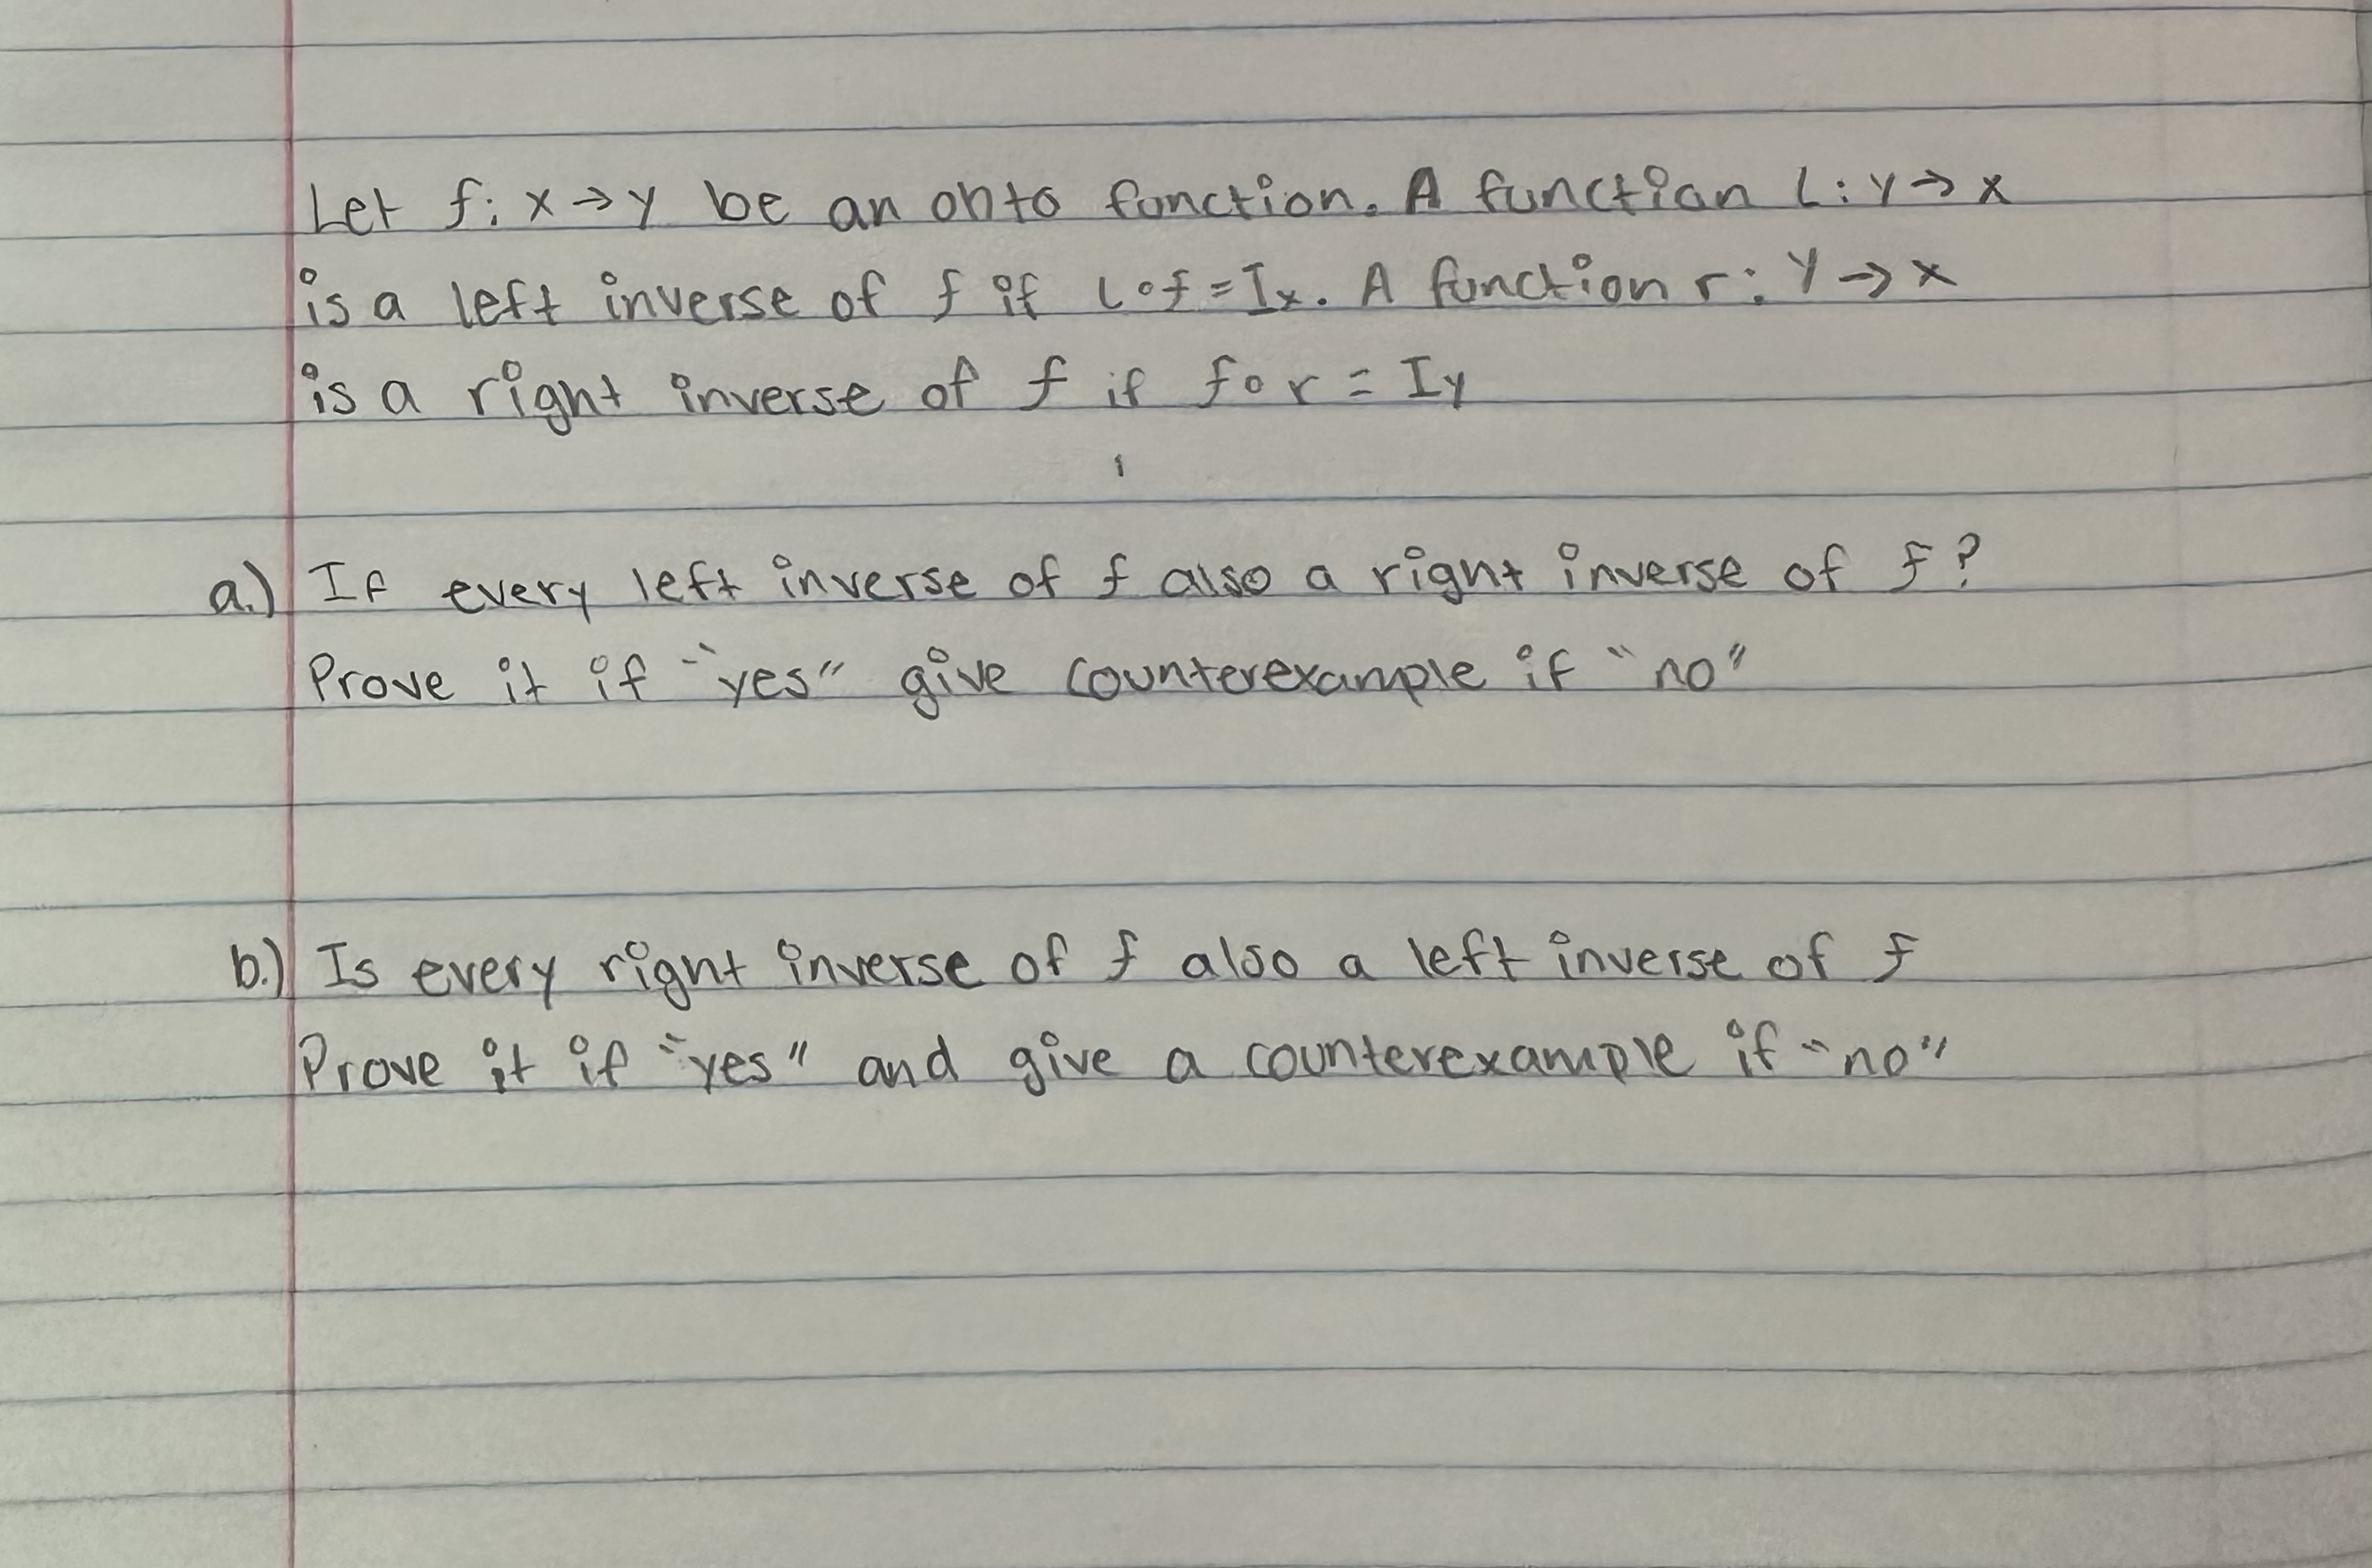 Let f: x → y be an onto function. A function L: y → x
is a left inverse of f if L∘f = Ix. A function r: y → x
is a right inverse of f if f∘r = Iy
a.) If every left inverse of f also a right inverse of f?
Prove it if "yes" give counterexample if "no"
b.) Is every right inverse of f also a left inverse of f
Prove it if "yes" and give a counterexample if "no"